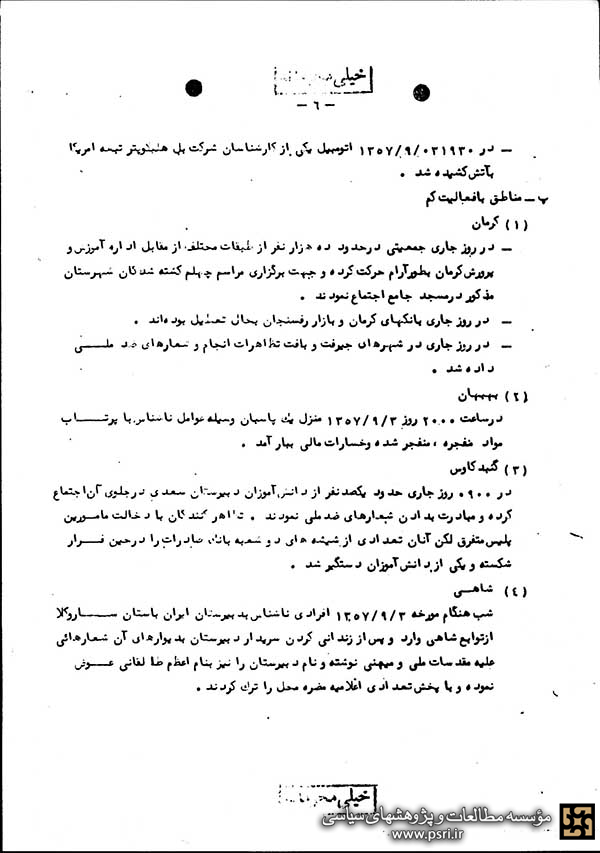 خیلی محرمانه
- ٦ -
ــ در ٠٣١٩٣٠/٩/١٣٥٧ اتومبیل یکی از کارشناسان شرکت بل هلیکوپتر تبعه امریکا
بآتش کشیده شد .
پ ــ مناطق با فعالیت کم
(١) کرمان
ــ در روز جاری جمعیتی در حدود ده هزار نفر از طبقات مختلف از مقابل اداره آموزش و
پرورش کرمان بطور آرام حرکت کرده و جهت برگزاری مراسم چهلم کشته شدگان شهرستان
مذکور در مسجد جامع اجتماع نمودند .
ــ در روز جاری بانکهای کرمان و بازار رفسنجان بحال تعطیل بوده‌اند .
ــ در روز جاری در شهرهای جیرفت و بافت تظاهرات انجام و شعارهای ضد ملــی
داده شد .
(٢) بهبهان
در ساعت ٢٠٠٠ روز ١٣٥٧/٩/٣ منزل یک پاسبان وسیله عوامل ناشناس با پرتــاب
مواد منفجره ، منفجر شده و خسارات مالی ببار آمد .
(٣) گنبد کاوس
در ٠٩٠٠ روز جاری حدود یکصد نفر از دانش‌آموزان دبیرستان سعدی در جلوی آن اجتماع
کرده و مبادرت بدادن شعارهای ضد ملی نمودند . تظاهر کنندگان با دخالت مامورین
پلیس متفرق لکن آنان تعدادی از شیشه های دو شعبه بانک صادرات را در حین فــرار
شکسته و یکی از دانش‌آموزان دستگیر شد .
(٤) شاهــی
شب هنگام مورخه ١٣٥٧/٩/٣ افرادی ناشناس به دبیرستان ایران باستان ســاروکلا
از توابع شاهی وارد و پس از زندانی کردن سریدار دبیرستان بدیوارهای آن شعارهائی
علیه مقدسات ملی و میهنی نوشته و نام دبیرستان را نیز بنام اعظم طالقانی عــوض
نموده و با پخش تعدادی اعلامیه مضره محل را ترک کردند .
خیلی محرمانه
مؤسسه مطالعات و پژوهشهای سیاسی
www.psri.ir